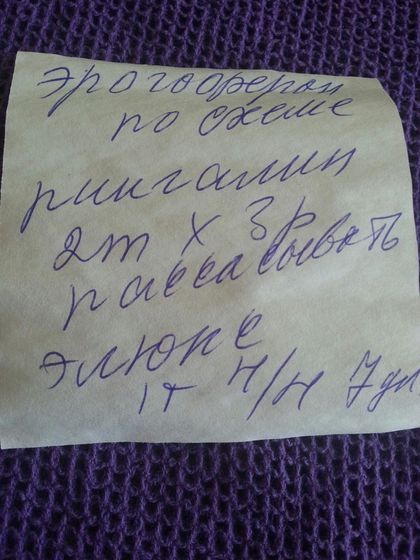 эргоферон
по схеме
рингалин
2т х 3р
рассасывать
элюке
1т н/н 7дн